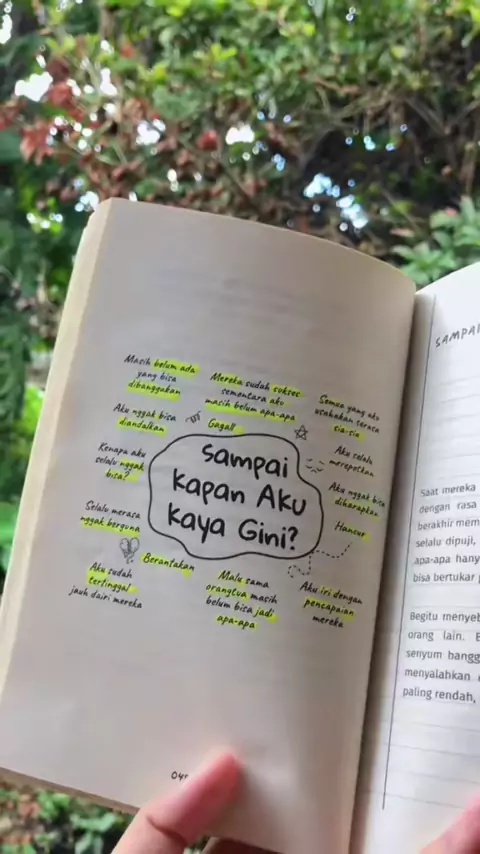 Masih belum ada
yang bisa
dibanggakan
Mereka sudah sukses
sementara aku
masih belum apa-apa
Semua yang aku
usahakan terasa
sia-sia
Aku nggak bisa
diandalkan
Gagal!
Kenapa aku
selalu nggak
bisa?
Aku selalu
merepotkan
Sampai
Kapan Aku
Kaya Gini?
Aku nggak bisa
diharapkan
Selalu merasa
nggak berguna
Hancur
Berantakan
Aku sudah
tertinggal
jauh dairi mereka
Malu sama
orangtua masih
belum bisa jadi
apa-apa
Aku iri dengan
pencapaian
mereka
SAMPAI
Saat mereka
dengan rasa
berakhir mem
selalu dipuji,
apa-apa hany
bisa bertukar
Begitu menyeb
orang lain.
senyum hangg
menyalahkan
paling rendah,